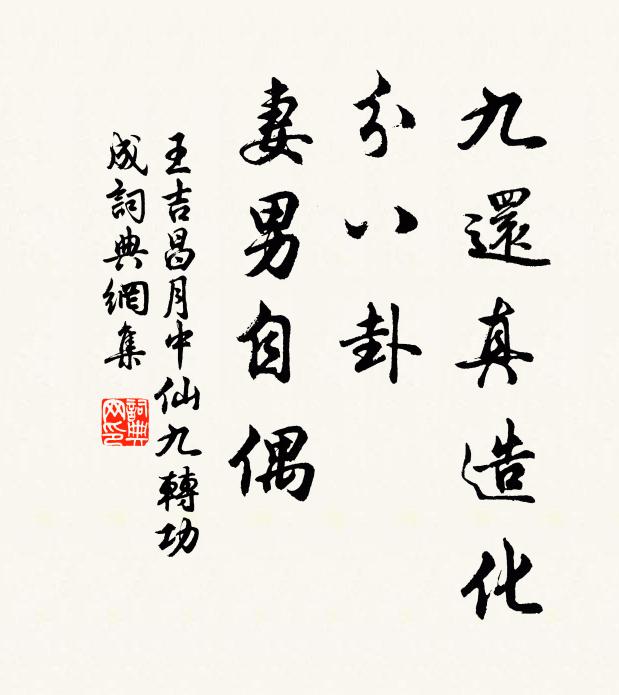 九還真造化
分八卦
妻男自偶
王吉昌月中仙九轉功
成詞典網集
詞典網印